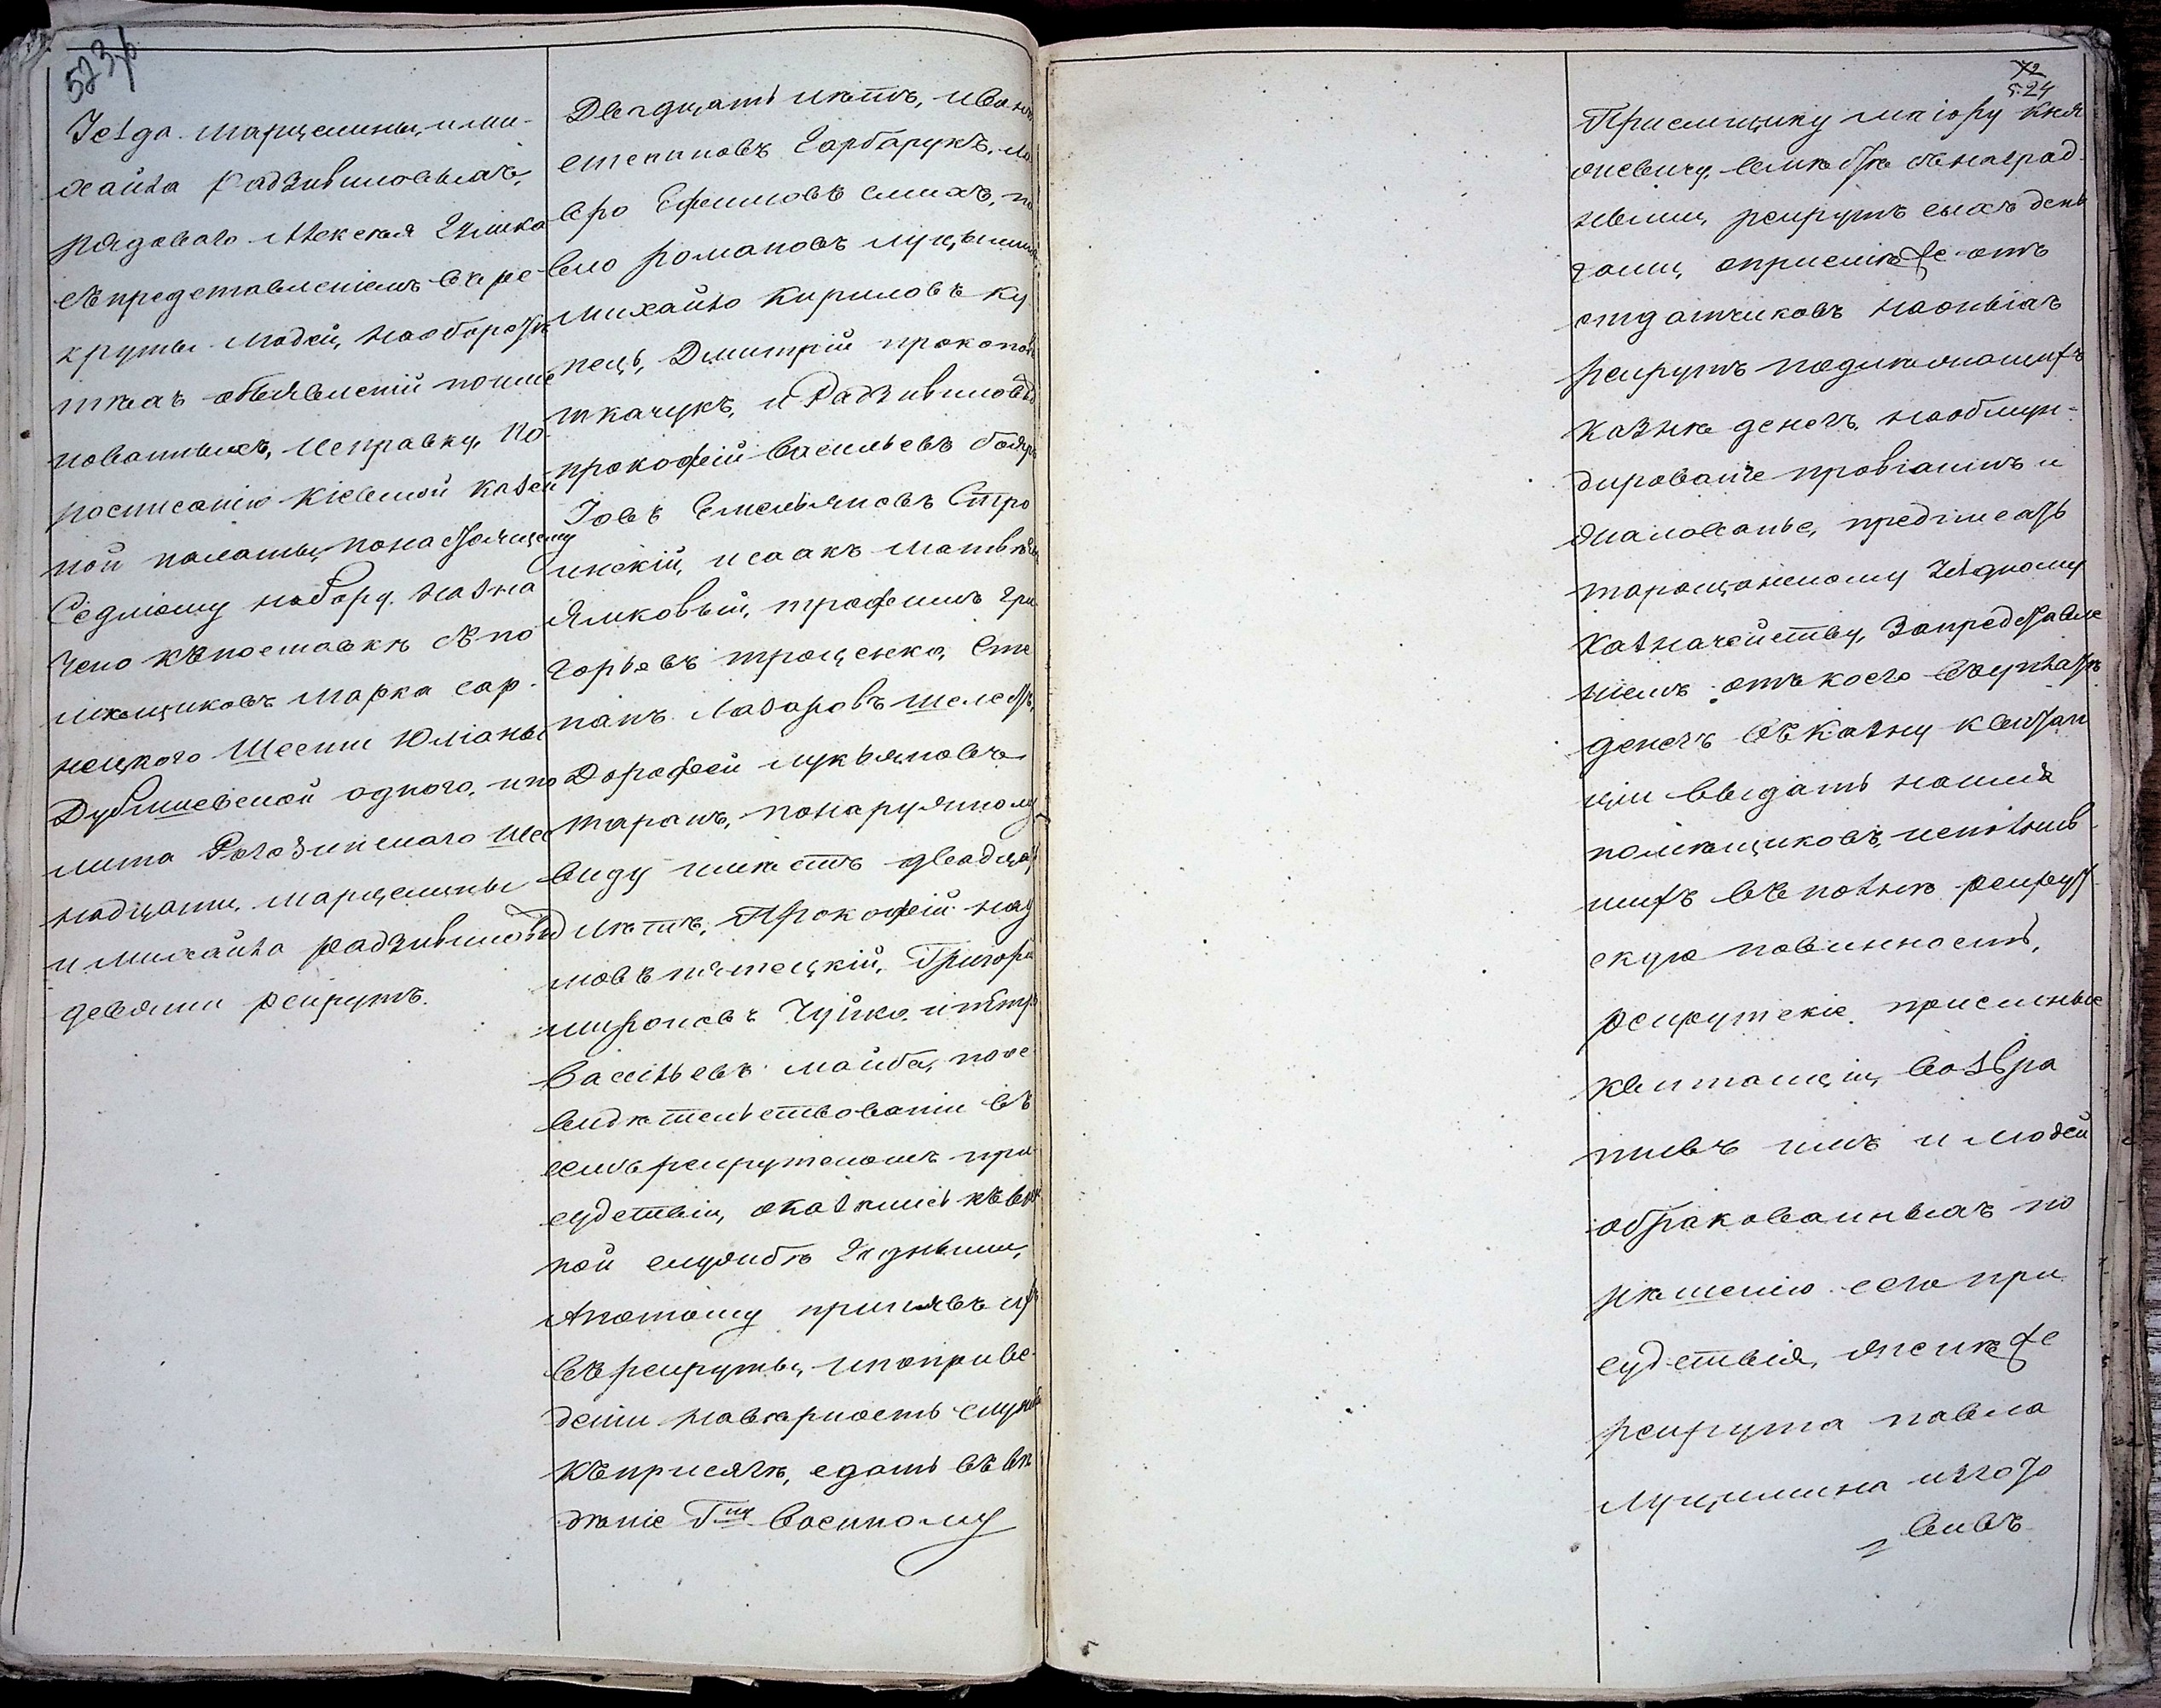 523/б
Уезда Марцелины, и ми-
хайла Радзивиловыхъ,
рядоваго Алексея Глинка
съ представлениемъ въ ре-
круты людей, на оборотѣ
тѣхъ объявленій поиме
нованныхъ, Исправку, По
росписанію Кіевской Казен
ной палаты, по настоящему
Седмому набору, назна
чено къ поставкѣ съ по
мѣщиковъ Марка Сар-
нецкого Шести Юліаны
Дубишевской одного, ипо
лита Рогозинскаго шес
надцати, Марцелины
и Михайла Радзивиловы
девяти рекрутъ.

Двадцать лѣтъ, Иванъ
Степановъ Гарбарукъ, ла
вро Ефимовъ слихъ, па
вло Романовъ луцышинъ,
Михайло Кириловъ Ку
пець, Дмитрій прокоповъ
ткачукъ, и Радзивиловыхъ
прокофій Васильевъ бояръ
Іовъ Емельяновъ Стро
инскій, исаакъ матвѣевъ
Ямковый, трофимъ Гри
горьевъ троценко, Сте
панъ Лазаровъ шелестъ,
Дорофей лукьяновъ
Таранъ, по наружному
виду имѣетъ двадцать
лѣтъ, Прокофій нау
мовъ пятецкій, Григорій
мироновъ Чуйко, и петръ
Васильевъ майба, по ос
видѣтельствованіи въ
семъ рекрутскомъ при
судствіи, оказались къ воин
ной службѣ Годными,
А потому принявъ ихъ
въ рекруты, и по приве
деніи на вѣрность службы
къ присягѣ, сдать въ вѣ
деніе Гну Военному

72
524
Приемщику маіору Княж
евичу, вмѣстѣ съ наград
ными, рекрутъ сихъ день
гами, о приемѣ же отъ
отдатчиковъ на оныхъ
рекрутъ подлежащихъ
казнѣ денегъ, на обмун-
дированіе провіантъ и
жалованье, предписать
таращанскому Уѣздному
Казначейству, За представле
ніемъ отъ коего въ уплатѣ
денегъ въ казну квитан
ціи выдать на имя
помѣщиковъ, исполнив
шихъ въ полнѣ рекрут
скую повинность,
рекрутскіе приемные
квитанціи, возвра
тивъ имъ и людей
обракованныхъ по
рѣшенію сего при
судствія, о женѣ же
рекрута павла
Луцишина изгото
вивъ